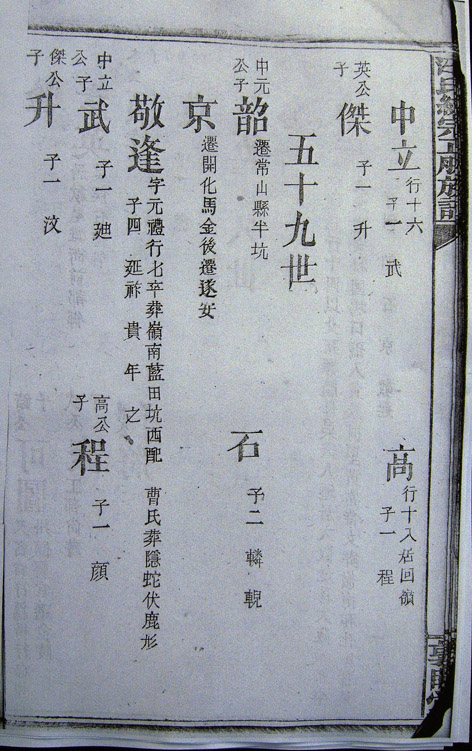 中立 行十六 子一 武
高 行十八居回嶺 子一 程
英公子 傑 子一 升
五十九世
中元公子 韶 遷常山縣半坑
石 子二 轔 輗
京 遷開化馬金後遷遂安
敬逢 字元禮行七卒葬嶺南藍田坑西配 曹氏葬隱蛇伏鹿形
子四 延祚 貴 年 之
中立公子 武 子一 廸
高公子 程 子一 顔
傑公子 升 子一 汶